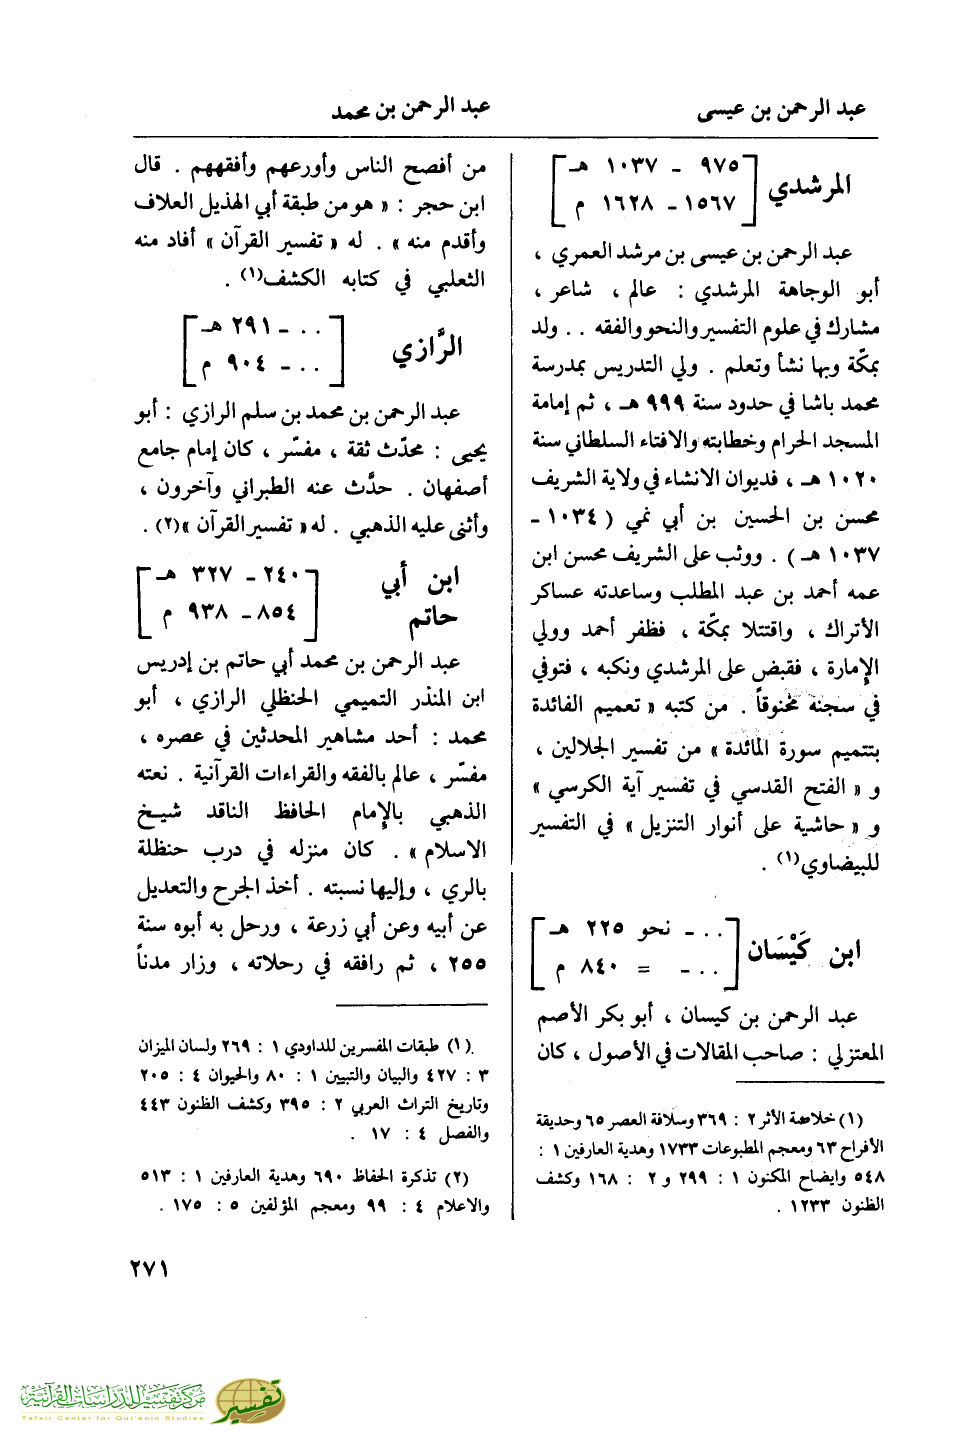 عبد الرحمن بن عيسى
عبد الرحمن بن محمد
المرشدي
٩٧٥ - ١٠٣٧ هـ
١٥٦٧ - ١٦٢٨ م
عبد الرحمن بن عيسى بن مرشد العمري ،
أبو الوجاهة المرشدي : عالم ، شاعر ،
مشارك في علوم التفسير والنحو والفقه . . ولد
بمكّة وبها نشأ وتعلم . ولي التدريس بمدرسة
محمد باشا في حدود سنة ٩٩٩ هـ ، ثم إمامة
المسجد الحرام وخطابته والافتاء السلطاني سنة
١٠٢٠ هـ ، فديوان الانشاء في ولاية الشريف
محسن بن الحسين بن أبي نمي ( ١٠٣٤ -
١٠٣٧ هـ ) . ووثب على الشريف محسن ابن
عمه أحمد بن عبد المطلب وساعدته عساكر
الأتراك ، واقتتلا بمكّة ، فظفر أحمد وولي
الإمارة ، فقبض على المرشدي ونكبه ، فتوفي
في سجنه مخنوقاً . من كتبه « تعميم الفائدة
بتتميم سورة المائدة » من تفسير الجلالين ،
و « الفتح القدسي في تفسير آية الكرسي »
و « حاشية على أنوار التنزيل » في التفسير
للبيضاوي (١) .
ابن كَيْسَان
. . - نحو ٢٢٥ هـ
. . - = ٨٤٠ م
عبد الرحمن بن كيسان ، أبو بكر الأصم
المعتزلي : صاحب المقالات في الأصول ، كان
(١) خلاصة الأثر ٢ : ٣٦٩ وسلافة العصر ٦٥ وحديقة
الأفراح ٦٣ ومعجم المطبوعات ١٧٣٣ وهدية العارفين ١ :
٥٤٨ وايضاح المكنون ١ : ٢٩٩ و ٢ : ١٦٨ وكشف
الظنون ١٢٣٣ .
من أفصح الناس وأورعهم وأفقههم . قال
ابن حجر : « هو من طبقة أبي الهذيل العلاف
وأقدم منه » . له « تفسير القرآن » أفاد منه
الثعلبي في كتابه الكشف (١) .
الرَّازي
. . - ٢٩١ هـ
. . - ٩٠٤ م
عبد الرحمن بن محمد بن سلم الرازي : أبو
يحيى : محدّث ثقة ، مفسّر ، كان إمام جامع
أصفهان . حدَّث عنه الطبراني وآخرون ،
وأثنى عليه الذهبي . له « تفسير القرآن » (٢) .
ابن أبي
حاتم
٢٤٠ - ٣٢٧ هـ
٨٥٤ - ٩٣٨ م
عبد الرحمن بن محمد أبي حاتم بن إدريس
ابن المنذر التميمي الحنظلي الرازي ، أبو
محمد : أحد مشاهير المحدثين في عصره ،
مفسّر ، عالم بالفقه والقراءات القرآنية . نعته
الذهبي بالإمام الحافظ الناقد شيخ
الاسلام » . كان منزله في درب حنظلة
بالري ، وإليها نسبته . أخذ الجرح والتعديل
عن أبيه وعن أبي زرعة ، ورحل به أبوه سنة
٢٥٥ ، ثم رافقه في رحلاته ، وزار مدناً
(١) طبقات المفسرين للداودي ١ : ٢٦٩ ولسان الميزان
٣ : ٤٢٧ والبيان والتبيين ١ : ٨٠ والحيوان ٤ : ٢٠٥
وتاريخ التراث العربي ٢ : ٣٩٥ وكشف الظنون ٤٤٣
والفصل ٤ : ١٧ .
(٢) تذكرة الحفاظ ٦٩٠ وهدية العارفين ١ : ٥١٣
والاعلام ٤ : ٩٩ ومعجم المؤلفين ٥ : ١٧٥ .
٢٧١
مركز تفسير للدراسات القرآنية
Tafsir Center for Qur'anic Studies
تفسير